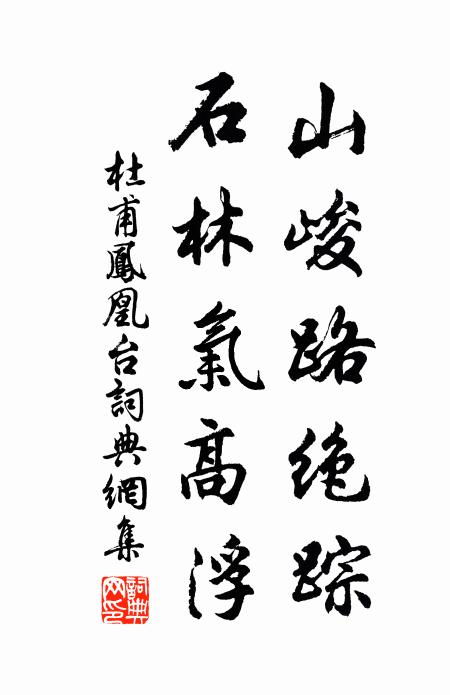 山峻路绝踪
石林氣高浮
杜甫鳳凰台詞典網集
詞典網印